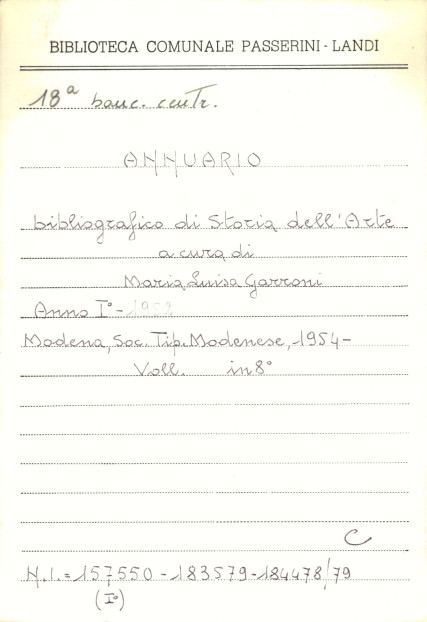 BIBLIOTECA COMUNALE PASSERINI - LANDI
18ª banc. centr.
ANNUARIO
bibliografico di Storia dell'Arte
a cura di
Maria Luisa Garroni
Anno I° - 1952
Modena, Soc. Tip. Modenese, 1954-
Voll. in 8°
C
N.I. = 157550 - 183579 - 184478/79
(I°)